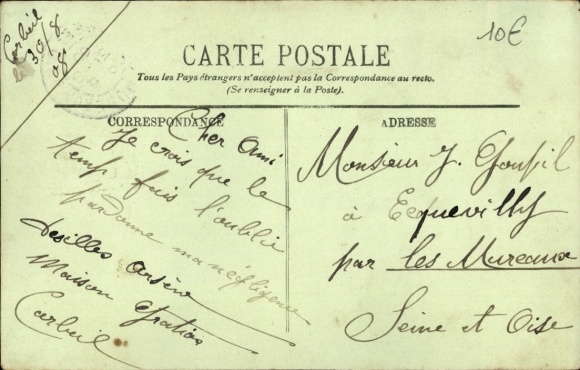 Corbeil
le 30/8
08
10€
CARTE POSTALE
Tous les Pays étrangers n'acceptent pas la Correspondance au recto.
(Se renseigner à la Poste).
CORRESPONDANCE
Cher Ami
Je crois que le
temp fuis l'oublie
pardonne ma négligence
Arsène
Maison
Corbeil
ADRESSE
Monsieur J. Goupil
à Ecquevilly
par les Mureaux
Seine et Oise